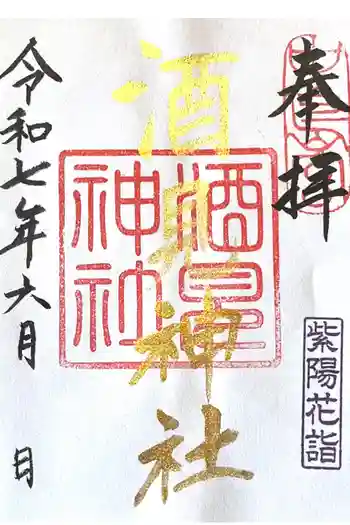 奉拝
紫陽花詣
酒見神社
酒見神社
令和七年六月 日